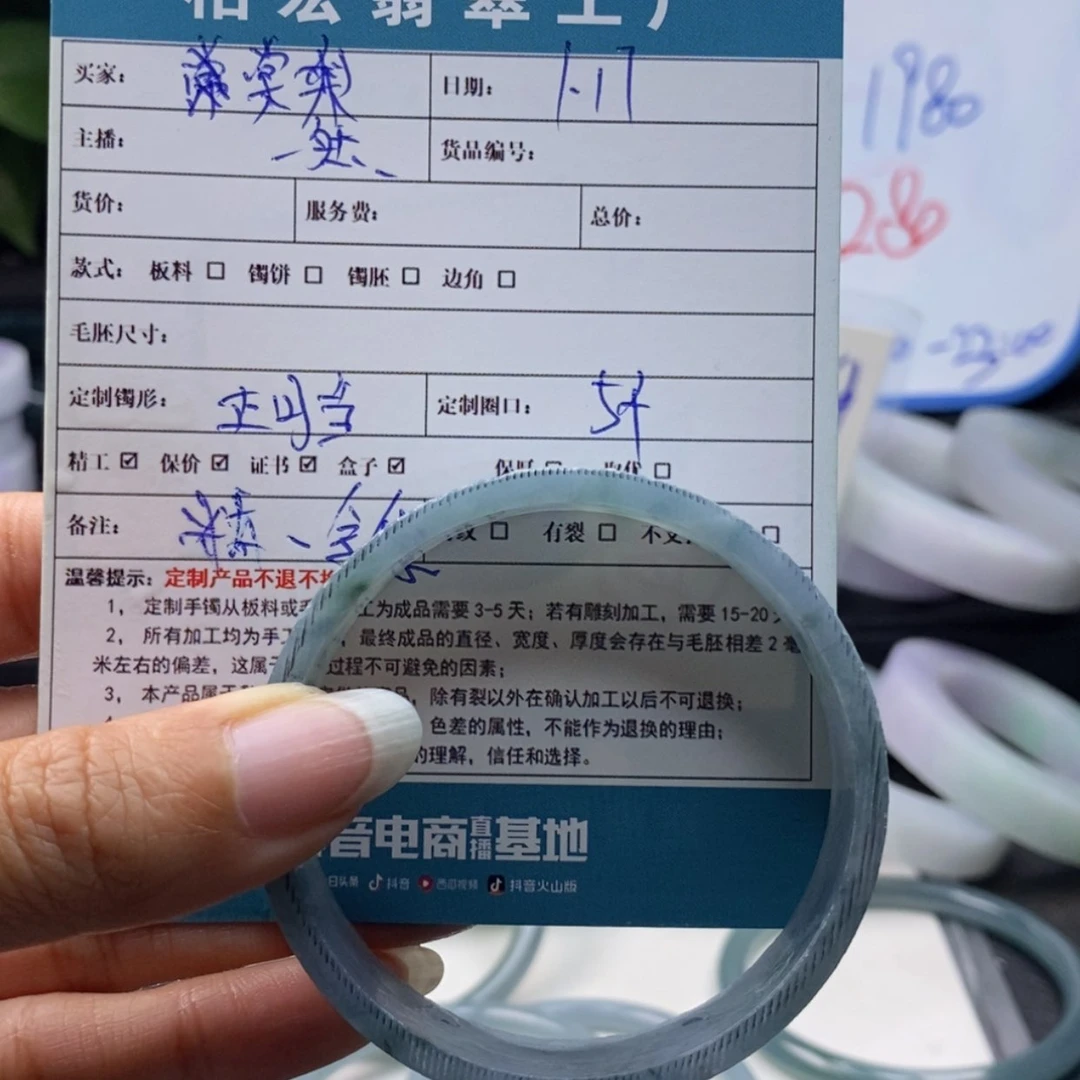 翡翠工厂
买家： 日期：1.17
主播：一然、 货品编号：
货价： 服务费： 总价：
款式： 板料 □ 镯饼 □ 镯胚 □ 边角 □
毛胚尺寸：
定制镯形：正叮当 定制圈口：54
精工 ☑ 保价 ☑ 证书 ☑ 盒子 ☑ □ □
备注： 纹 □ 有裂 □ □
温馨提示：定制产品不退不换
1， 定制手镯从板料或 工为成品需要 3-5 天；若有雕刻加工，需要 15-20
2， 所有加工均为手工 ，最终成品的直径、宽度、厚度会存在与毛胚相差 2 毫
米左右的偏差，这属于 过程不可避免的因素；
3， 本产品属于 品，除有裂以外在确认加工以后不可退换；
色差的属性，不能作为退换的理由；
的理解，信任和选择。
音电商直播基地
日头条 抖音 西瓜视频 抖音火山版
1980
280
-23:00